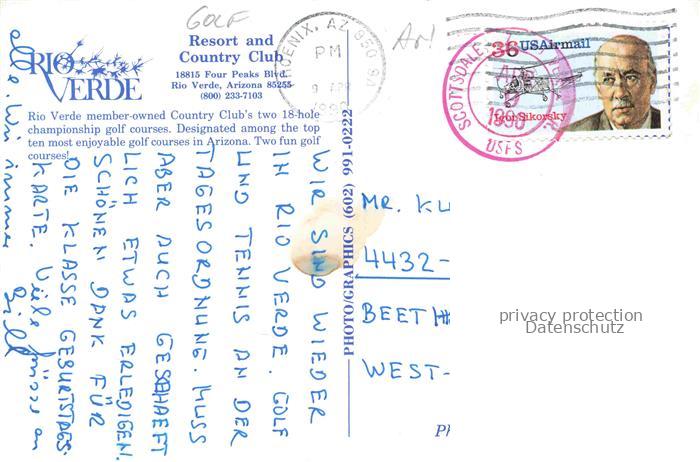 GOLF
RIO VERDE
Resort and
Country Club
18815 Four Peaks Blvd.
Rio Verde, Arizona 85255
(800) 233-7103
Rio Verde member-owned Country Club's two 18-hole
championship golf courses. Designated among the top
ten most enjoyable golf courses in Arizona. Two fun golf
courses!
PHOENIX, AZ 850
PM
9 APR
1990
36 USAirmail
Igor Sikorsky
SCOTTSDALE,
APR
1990
USPS
WIR SIND WIEDER
IN RIO VERDE. GOLF
UND TENNIS AN DER
TAGESORDNUNG. MUSS
ABER AUCH GESCHAEFT
LICH ETWAS ERLEDIGEN.
SCHÖNEN DANK FÜR
DIE KLASSE GEBURTSTAGS-
KARTE. Viele Grüsse an
alle. Wie immer
Bill
PHOTO/GRAPHICS (602) 991-0222
MR. KU
4432-
BEETH
WEST-
privacy protection
Datenschutz